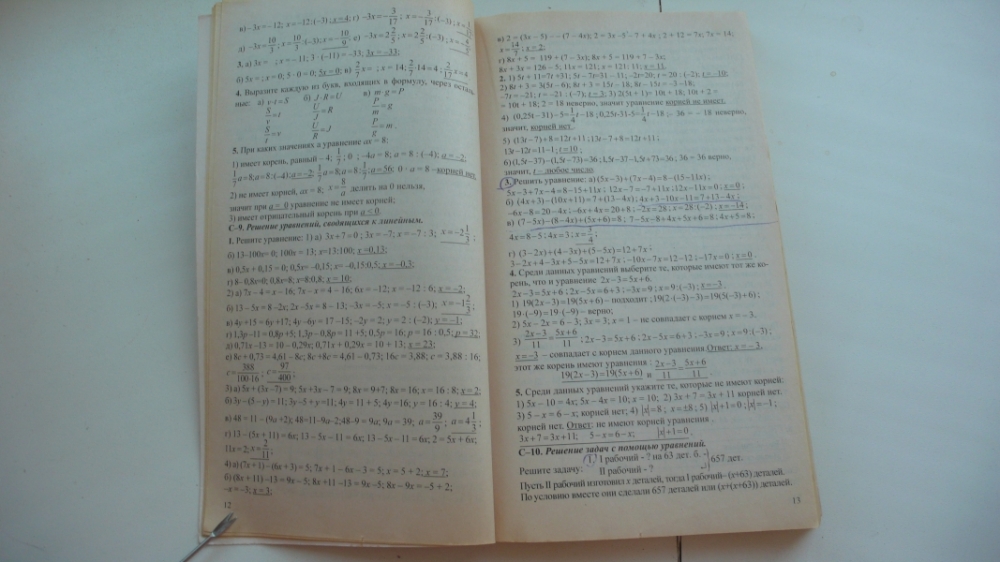 в) −3x = −12; x = −12:(−3); x=4; г) −3x=−3/17; x=−3/17:(−3);
а) −3x=10/3; x=10/3:(−3); x=−10/9; в) −3x=2 2/5; x=2 2/5:(−3);
3. а) 3x = ; x = −11; 3·(−11) = −33; 3x = −33;
б) 5x = ; x = 0; 5·0 = 0; 5x = 0; в) 2/7x = ; x = 14; 2/7·14 = 4; 2/7x = 4
4. Выразите каждую из букв, входящих в формулу, через
ные: а) v·t=S б) J·R=U в) m·g=P
S/v=t U/J=R P/m=g
S/v U/R=J P/g=m.
5. При каких значениях a уравнение ax = 8:
1) имеет корень, равный −4; 1/7; 0; −4a = 8; a = 8:(−4); a = −2.
1/7a=8; a=8:(−4); a=−2; 1/7a=8; a=8:1/7; a=56; 0·a=8 – корней нет.
2) не имеет корней, ax = 8; x=8/a делить на 0 нельзя,
значит при a = 0 уравнение не имеет корней;
3) имеет отрицательный корень при a < 0.
С–9. Решение уравнений, сводящихся к линейным.
1. Решите уравнение: 1) а) 3x+7=0; 3x=−7; x=−7:3; x=−2 1/3;
б) 13−100x=0; 100x=13; x=13:100; x=0,13;
в) 0,5x + 0,15 = 0; 0,5x= −0,15; x= −0,15:0,5; x= −0,3;
г) 8−0,8x=0; 0,8x=8; x=8:0,8; x=10;
2) а) 7x − 4 = x − 16; 7x − x = 4 − 16; 6x = −12; x = −12 : 6; x = −2;
б) 13 − 5x = 8 −2x; 2x −5x = 8 − 13; −3x = −5; x = −5 : (−3); x=−1 2/3;
в) 4y+15 = 6y+17; 4y −6y = 17 −15; −2y = 2; y = 2 : (−2); y = −1;
г) 1,3p−11=0,8p+5; 1,3p−0,8p=11+5; 0,5p=16; p=16:0,5; p=32;
д) 0,71x −13 = 10 − 0,29x; 0,71x + 0,29x = 10 + 13; x = 23;
е) 8c + 0,73 = 4,61 − 8c; 8c +8c = 4,61 − 0,73; 16c = 3,88; c = 3,88 : 16;
c=388/100·16; c=97/400;
3) а) 5x + (3x −7) = 9; 5x + 3x − 7 = 9; 8x = 9+7; 8x = 16; x = 16 : 8; x = 2;
б) 3y − (5 − y) = 11; 3y −5 + y =11; 4y = 11 + 5; 4y =16; y = 16 : 4; y = 4;
в) 48 = 11 − (9a +2); 48=11−9a−2; 48−9 = 9a; 9a = 39; a=39/9; a=4 1/3;
г) 13 − (5x + 11) = 6x; 13 − 5x −11 = 6x; 13 − 5x −11 = 6x; 2 = 5x + 6x;
11x = 2; x=2/11;
4) а) (7x + 1) − (6x + 3) = 5; 7x + 1 − 6x − 3 = 5; x = 5 + 2; x = 7;
б) (8x + 11) −13 = 9x −5; 8x + 11 −13 = 9x −5; 8x − 9x = −5 + 2;
−x = −3; x = 3;
12
в) 2 = (3x − 5) − (7 − 4x); 2 = 3x −5 − 7 + 4x; 2 + 12 = 7x; 7x = 14;
x=14/7; x=2;
г) 8x + 5 = 119 + (7 − 3x); 8x + 5 = 119 + 7 − 3x;
8x + 3x = 126 − 5; 11x = 121; x = 121 : 11; x = 11.
2. 1) 5t + 11=7t +31; 5t − 7t=31 − 11; −2t=20; t = 20 : (−2); t = −10;
2) 8t + 3 = 3(5t − 6); 8t + 3 = 15t − 18; 8t − 15t = −3 −18;
−7t = −21; t = −21 : (−7); t = 3; 3) 2(5t + 1)= 10t + 18; 10t + 2 =
= 10t + 18; 2 = 18 неверно, значит уравнение корней не имеет.
4) (0,25t−31)−5=1/4t−18; 0,25t−31−5=1/4t−18; − 36 = − 18 неверно,
значит, корней нет.
5) (13t−7)+8=12t+11; 13t−7+8=12t+11;
13t−12t=11−1; t=10;
6) (1,5t−37)−(1,5t−73)=36; 1,5t−37−1,5t+73=36; 36 = 36 верно,
значит, t – любое число.
3. Решить уравнение: а) (5x−3)+(7x−4)=8−(15−11x);
5x−3+7x−4=8−15+11x; 12x−7=−7+11x; 12x−11x=0; x=0;
б) (4x+3)−(10x+11)=7+(13−4x); 4x+3−10x−11=7+13−4x;
−6x−8=20−4x; −6x+4x=20+8; −2x=28; x=28:(−2); x=−14;
в) (7−5x)−(8−4x)+(5x+6)=8; 7−5x−8+4x+5x+6=8; 4x+5=8;
4x=8−5; 4x=3; x=3/4;
г) (3−2x)+(4−3x)+(5−5x)=12+7x;
3−2x+4−3x+5−5x=12+7x; −10x−7x=12−12; −17x=0; x=0.
4. Среди данных уравнений выберите те, которые имеют тот же ко-
рень, что и уравнение 2x−3=5x+6.
2x−3=5x+6; 2x−5x=6+3; −3x=9; x=9:(−3); x=−3.
1) 19(2x−3)=19(5x+6) – подходит; 19(2·(−3)−3)=19(5(−3)+6);
19·(−9)=19·(−9) – верно;
2) 5x − 2x = 6 − 3; 3x = 3; x = 1 – не совпадает с корнем x = −3.
3) 2x−3/11=5x+6/11; 2x−3=5x+6; 2x−5x=6+3; −3x=9; x=9:(−3);
x=−3 – совпадает с корнем данного уравнения Ответ: x = − 3,
этот же корень имеют уравнения: 2x−3/11=5x+6/11
19(2x−3)=19(5x+6) и
5. Среди данных уравнений укажите те, которые не имеют корней.
1) 5x − 10 = 4x; 5x − 4x = 10; x = 10; 2) 3x + 7 = 3x + 11 корней нет.
3) 5 − x = 6 − x; корней нет; 4) |x|=8; x=±8; 5) |x|+1=0; |x|=−1;
корней нет. Ответ: не имеют корней уравнения
3x+7=3x+11; 5−x=6−x; |x|+1=0.
С–10. Решение задач с помощью уравнений.
1. I рабочий - ? на 63 дет. б.
Решите задачу: 657 дет.
II рабочий - ?
Пусть II рабочий изготовил x деталей, тогда I рабочий– (x+63) деталей.
По условию вместе они сделали 657 деталей или (x+(x+63)) деталей.
13